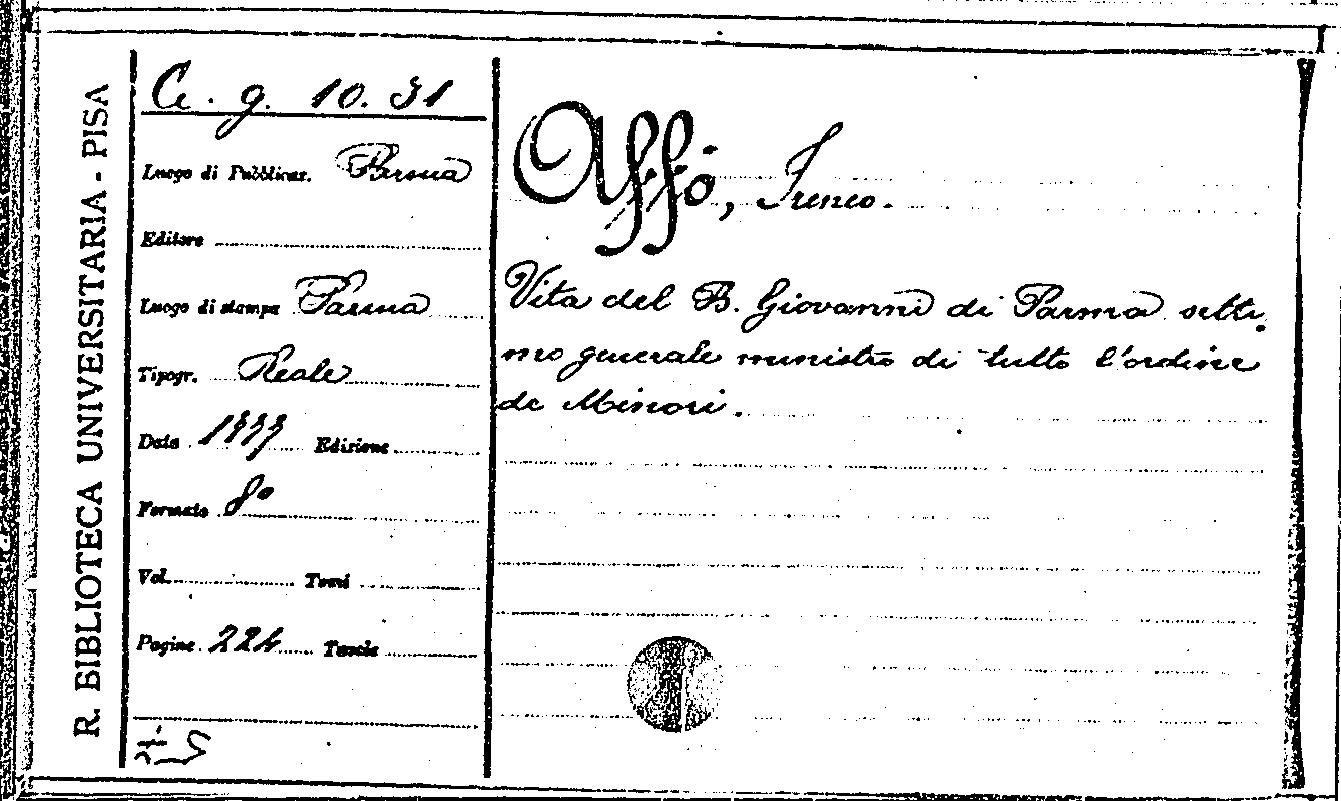 R. BIBLIOTECA UNIVERSITARIA - PISA
Ce. g. 10. 31
Luogo di Pubblicaz. Parma
Editore
Luogo di stampa Parma
Tipogr. Reale
Data 1777 Edizione
Formato 8°
Vol. Tomi
Pagine 224 Tavole
Affò, Ireneo.
Vita del B. Giovanni di Parma setti
mo generale ministro di tutto l'ordine
de Minori.